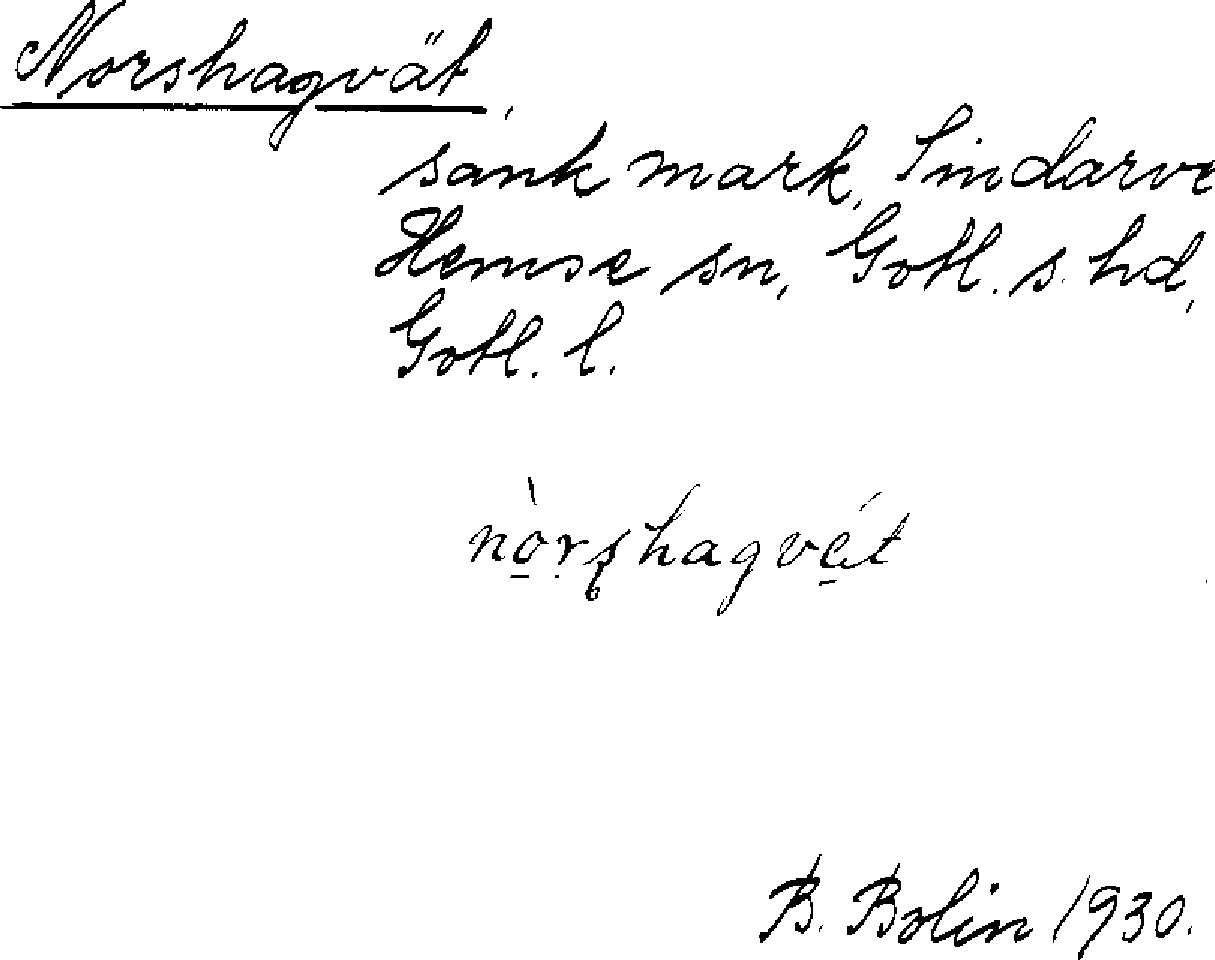 Norshagvät,
sank mark, Sindarve
Hemse sn, Gotl. s. hd,
Gotl. l.
nò̱rʂhagvé̱t
B. Bolin 1930.